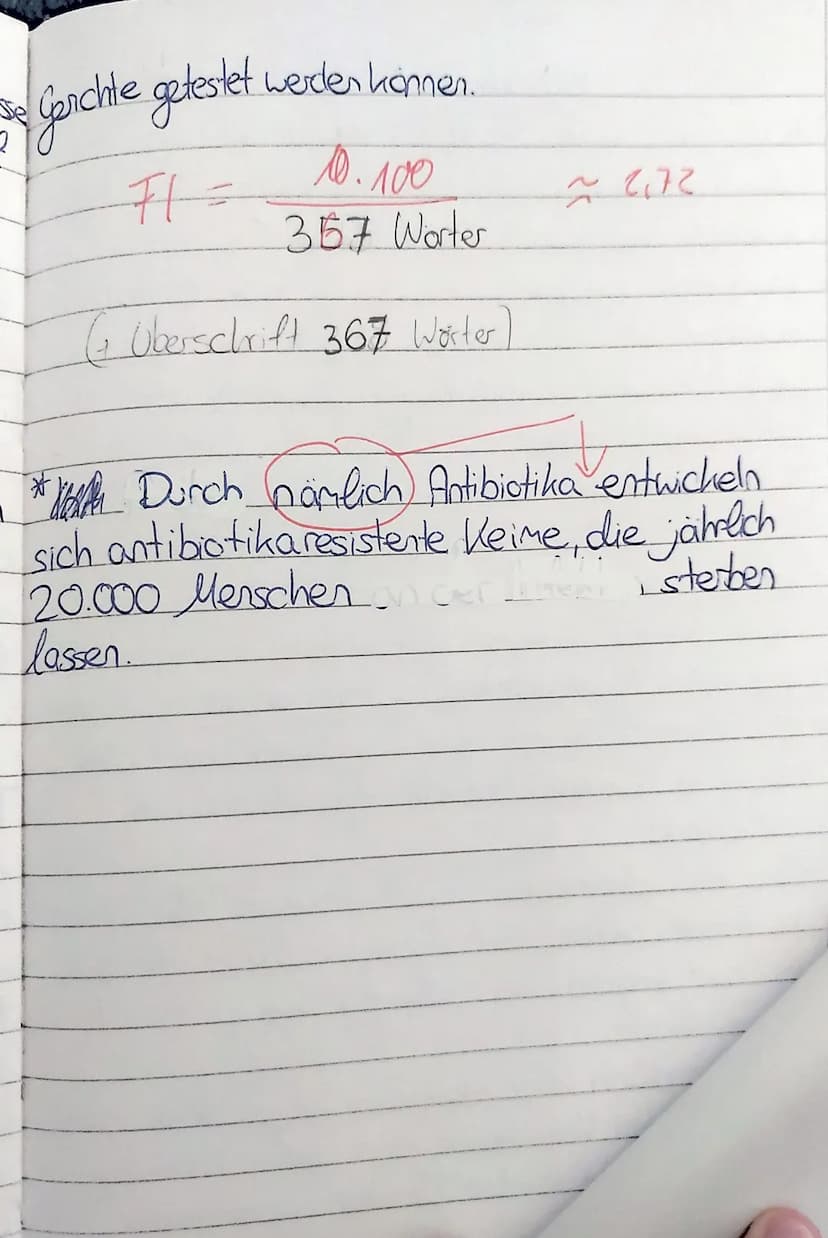 sse Gerichte getestet werden können.
FI = 10.100 / 367 Wörter ≈ 2,72
(+ Überschrift 367 Wörter)
* Durch nämlich Antibiotika entwickeln
sich antibiotikaresistente Keime, die jährlich
20.000 Menschen sterben
lassen.